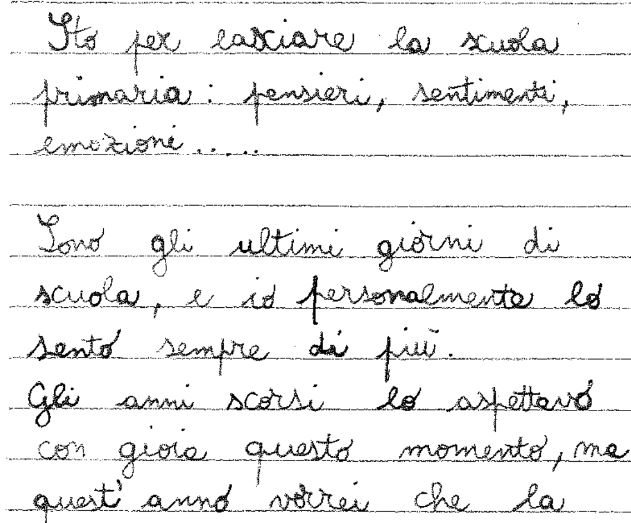 Sto per lasciare la scuola
primaria: pensieri, sentimenti,
emozioni.....
Sono gli ultimi giorni di
scuola, e io personalmente lo
sento sempre di più.
Gli anni scorsi lo aspettavo
con gioia questo momento, ma
quest'anno vorrei che la